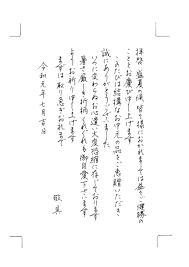 拝啓 盛夏の候、皆々様におかれましては益々ご健勝の
こととお慶び申し上げます
このたびは結構なお中元の品をご恵贈いただき
誠にありがとうございます
いつに変わらぬお心遣い大変恐縮に存じております
暑さ厳しき折柄 くれぐれも御自愛下さいます
ようお祈り申し上げます
まずは取り急ぎお礼まで
敬具
令和元年七月吉日